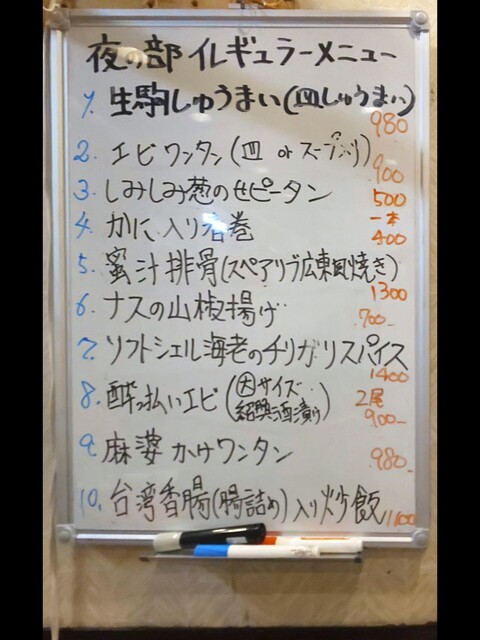 夜の部 イレギュラーメニュー
1. 生駒しゅうまい(皿しゅうまい)
980
2. エビワンタン(皿 or スープ入り)
900
3. しみしみ葱のせピータン
500
4. かに入り春巻
一本
400
5. 蜜汁排骨(スペアリブ広東風焼き)
1300
6. ナスの山椒揚げ
700-
7. ソフトシェル海老のチリガーリスパイス
1400
8. 酔っ払いエビ(大サイズ
紹興酒漬け)
2尾
900-
9. 麻婆かけワンタン
980-
10. 台湾香腸(腸詰め)入り炒飯
1100